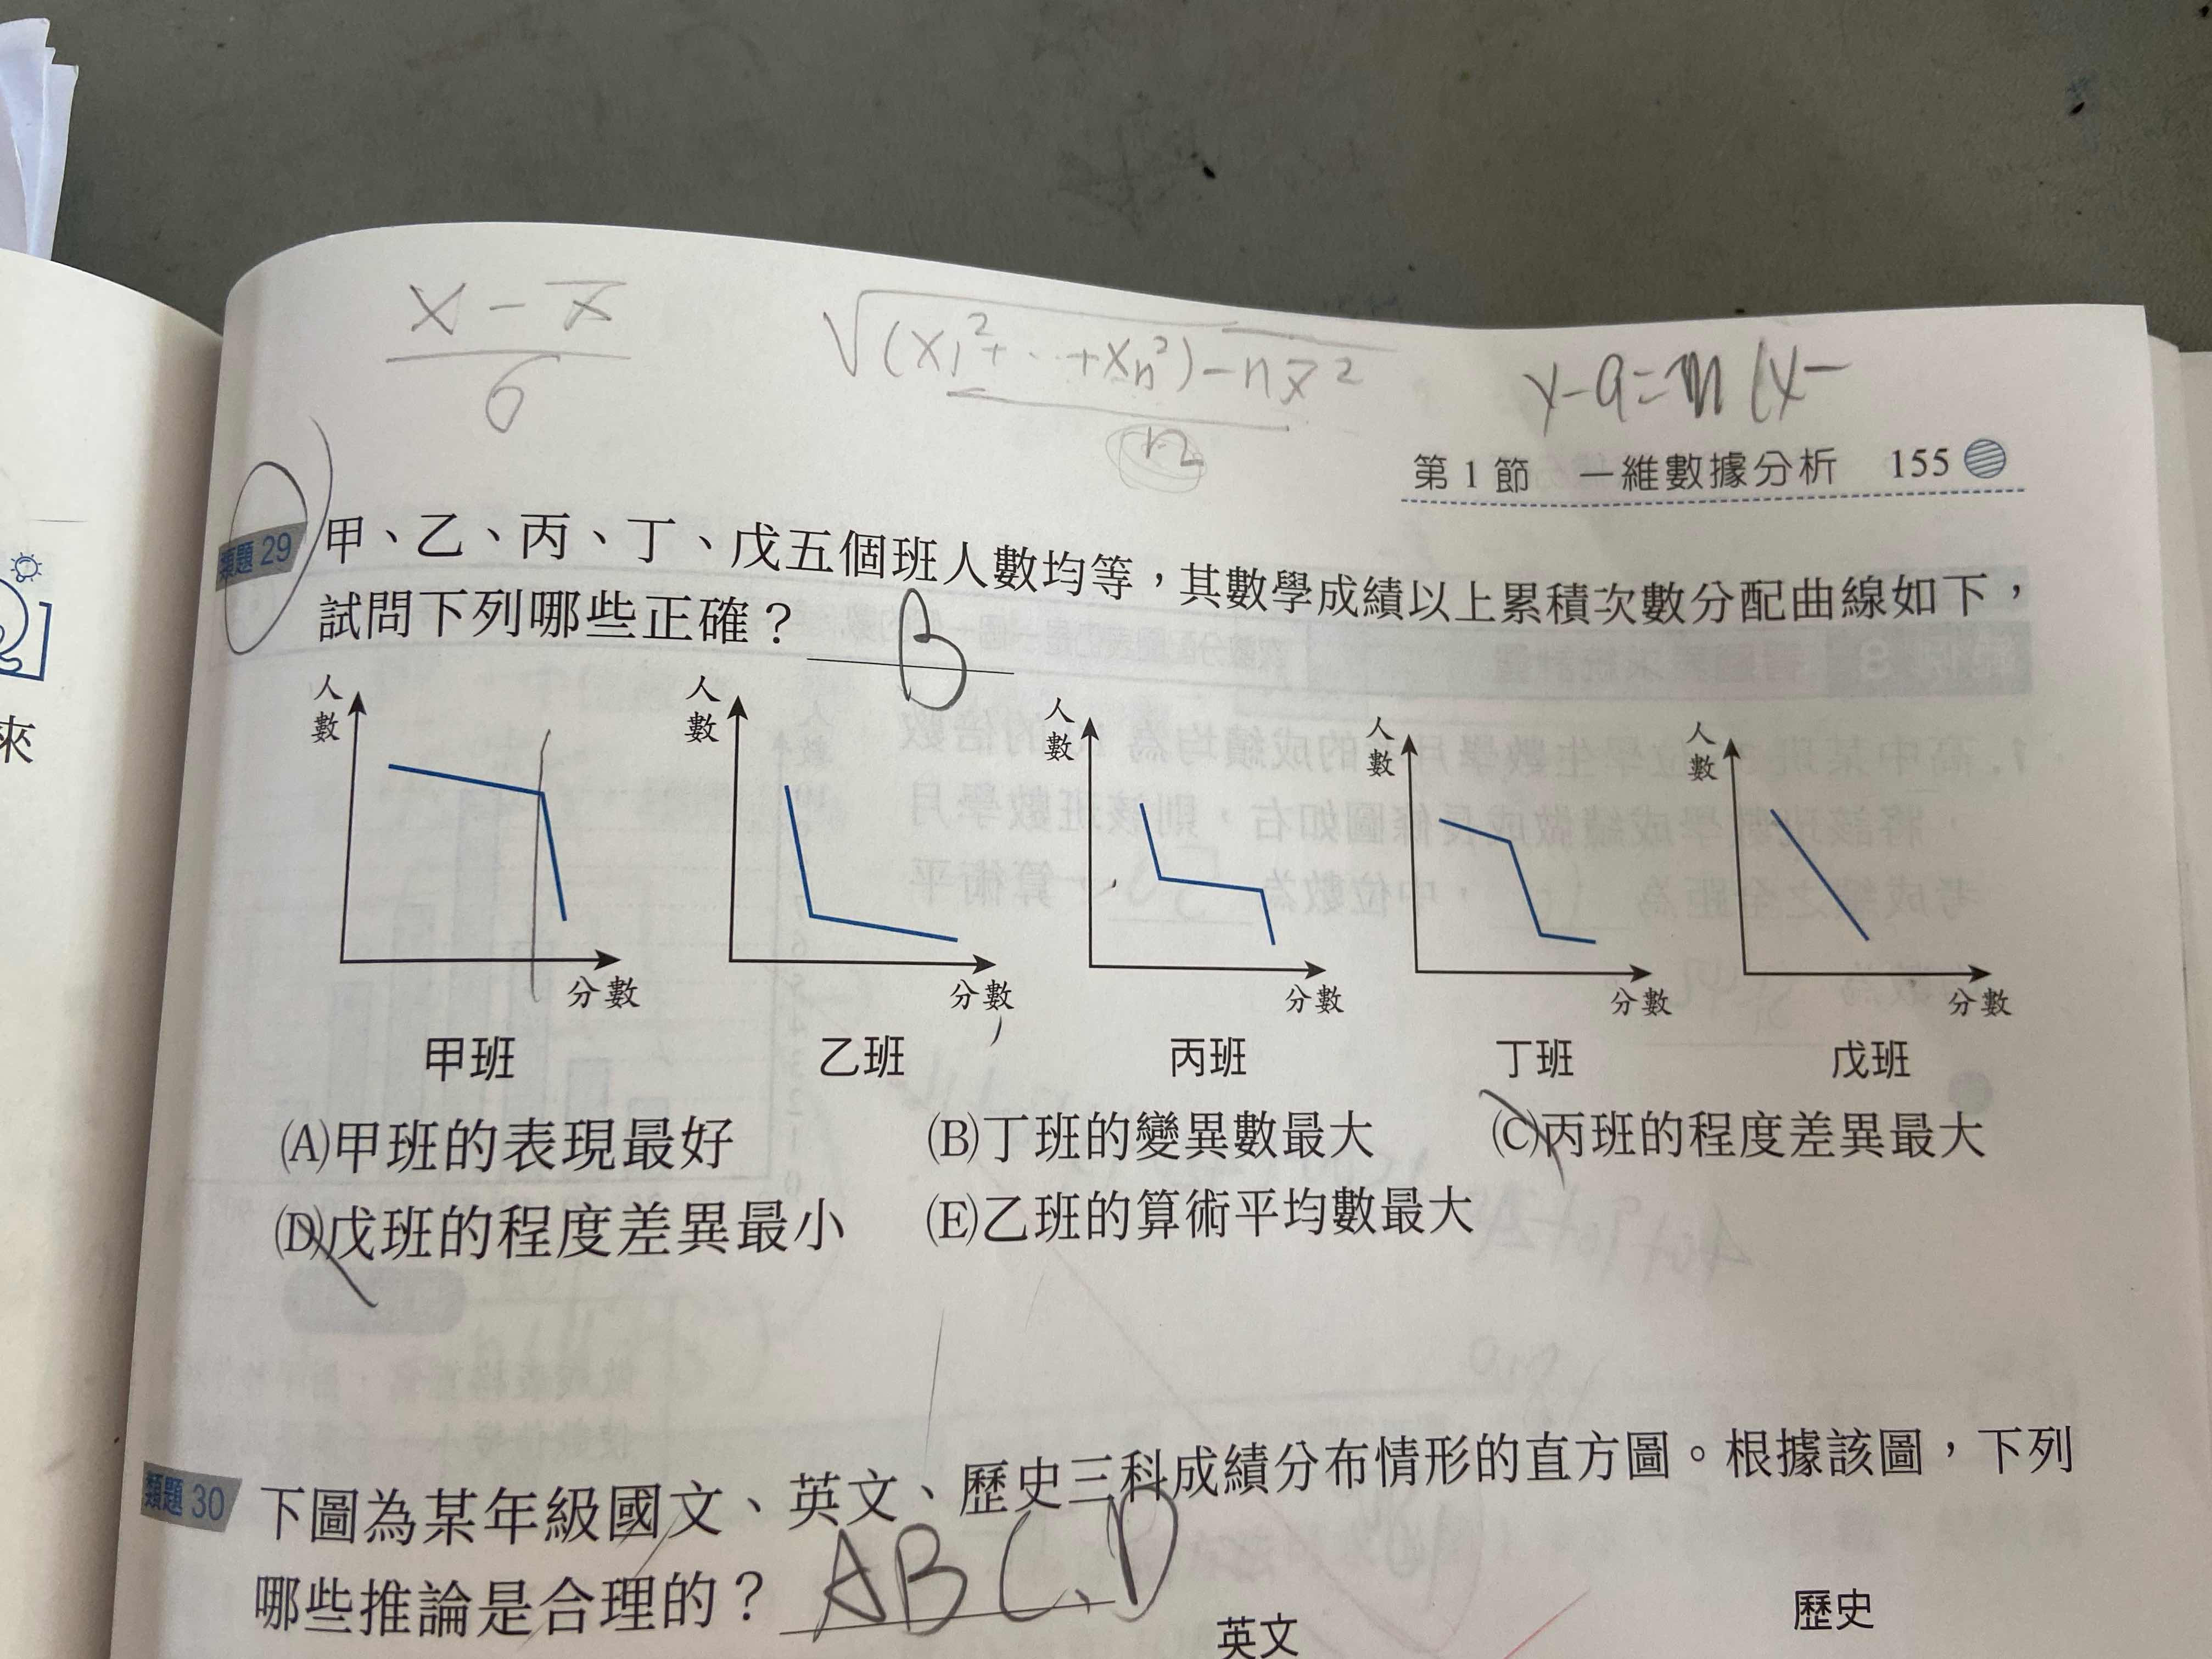 x - x̄
σ
√(x₁²+…+xₙ²)-nx̄²
n
y-a=m(x-
第1節 一維數據分析 155
類題 29 甲、乙、丙、丁、戊五個班人數均等，其數學成績以上累積次數分配曲線如下，
試問下列哪些正確？ B
人數 人數 人數 人數 人數
分數 分數 分數 分數 分數
甲班 乙班 丙班 丁班 戊班
(A)甲班的表現最好 (B)丁班的變異數最大 (C)丙班的程度差異最大
(D)戊班的程度差異最小 (E)乙班的算術平均數最大
類題 30 下圖為某年級國文、英文、歷史三科成績分布情形的直方圖。根據該圖，下列
哪些推論是合理的？ ABC、D
英文 歷史
來